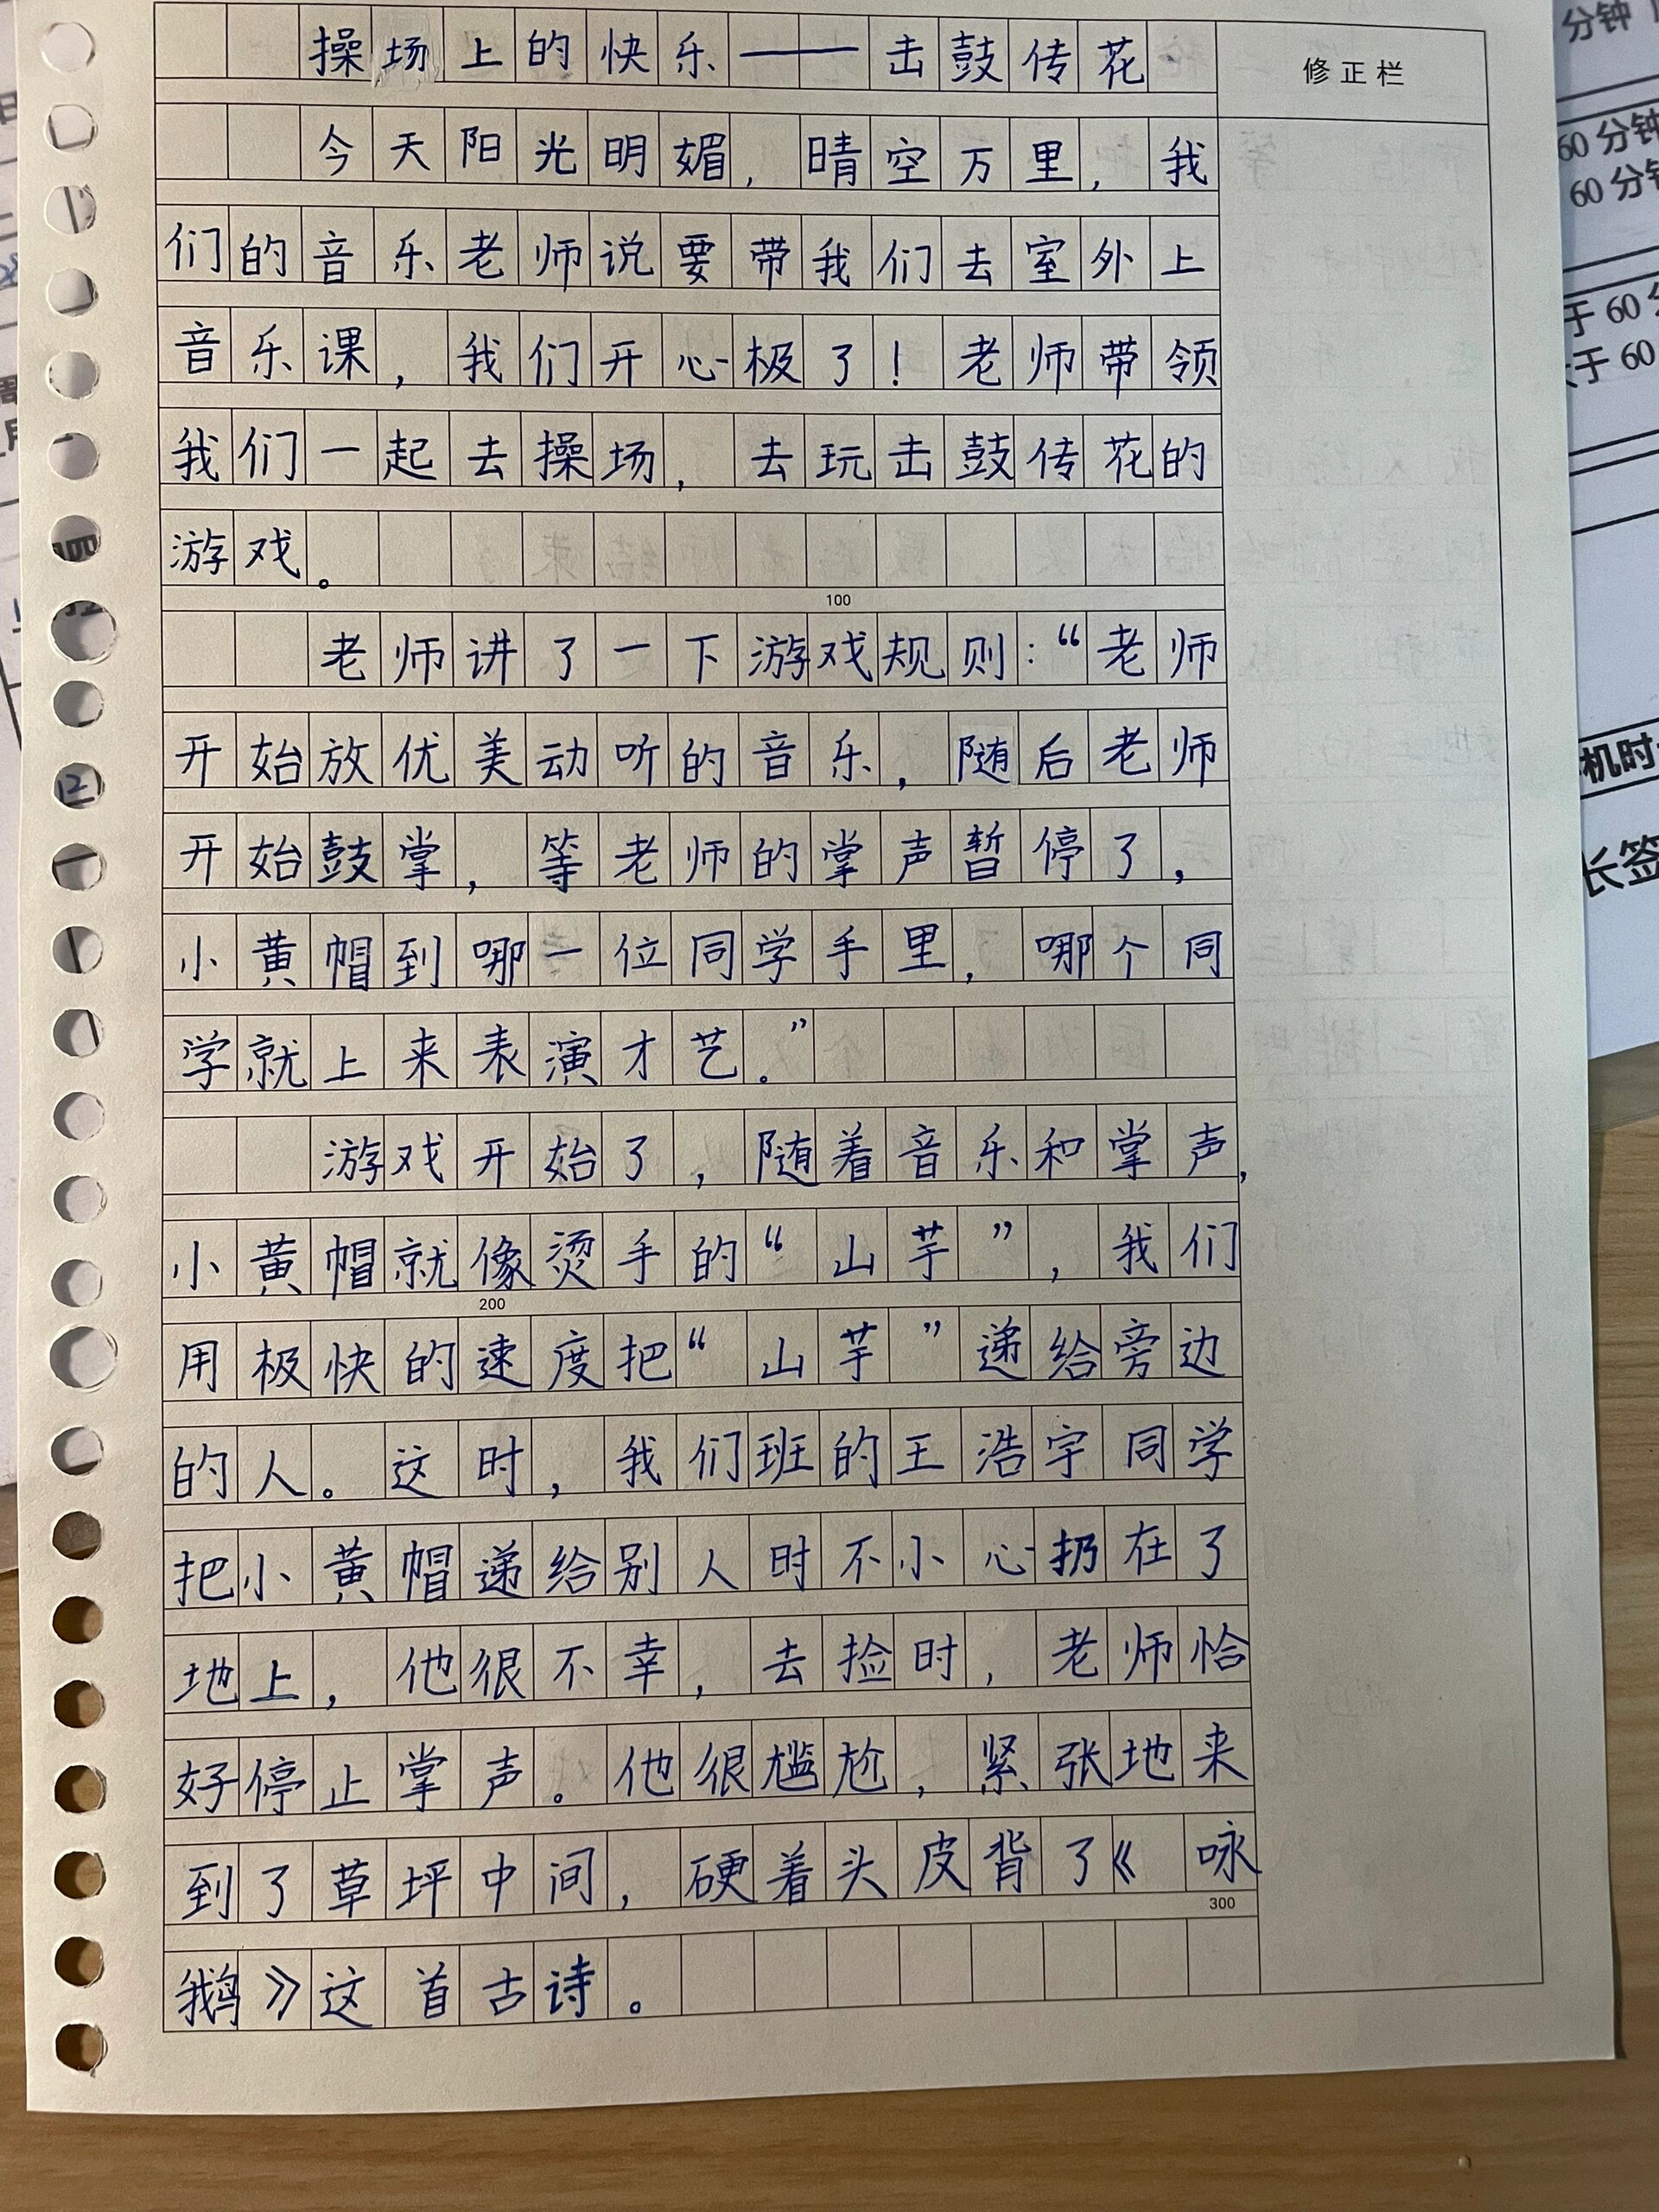 操场上的快乐——击鼓传花
修正栏
今天阳光明媚，晴空万里，我
们的音乐老师说要带我们去室外上
音乐课，我们开心极了！老师带领
我们一起去操场，去玩击鼓传花的
游戏。
100
老师讲了一下游戏规则：“老师
开始放优美动听的音乐，随后老师
开始鼓掌，等老师的掌声暂停了，
小黄帽到哪一位同学手里，哪个同
学就上来表演才艺。”
游戏开始了，随着音乐和掌声，
小黄帽就像烫手的“山芋”，我们
200
用极快的速度把“山芋”递给旁边
的人。这时，我们班的王浩宇同学
把小黄帽递给别人时不小心扔在了
地上，他很不幸，去捡时，老师恰
好停止掌声。他很尴尬，紧张地来
到了草坪中间，硬着头皮背了《咏
300
鹅》这首古诗。
分钟
60分钟
60分钟
于60分
大于60
机时
长签